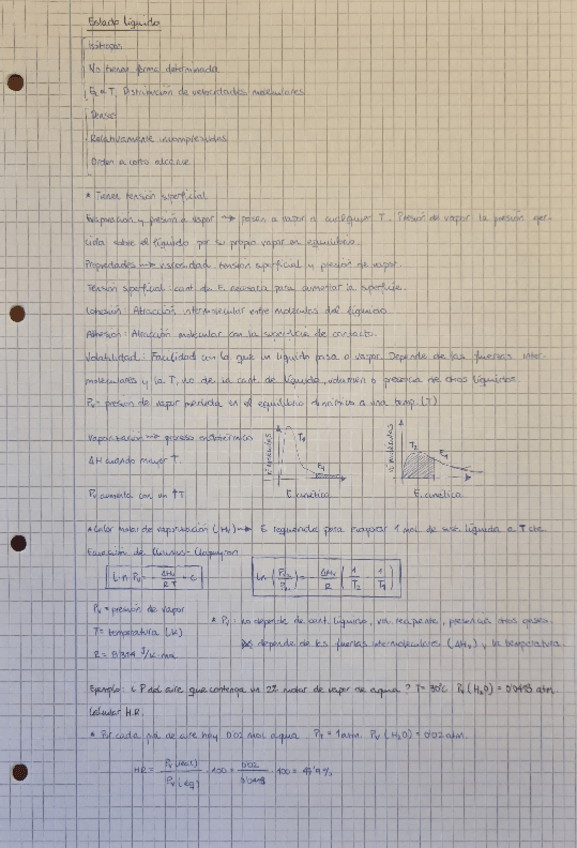 Estado líquido
Isótropo
No tienen forma determinada
Ec α T, Distribución de velocidades moleculares
Densos
Relativamente incompresibles
Orden a corto alcance
* Tienen tensión superficial
Evaporación y presión de vapor → pasan a vapor a cualquier T. Presión de vapor la presión ejer-
cida sobre el líquido por su propio vapor en equilibrio.
Propiedades → viscosidad, tensión superficial y presión de vapor.
Tensión superficial: cant de E necesaria para aumentar la superficie.
Cohesión: Atracción intermolecular entre moléculas del líquido
Adhesión: Atracción molecular con la superficie de contacto.
Volatilidad: Facilidad con la que un líquido pasa a vapor. Depende de las fuerzas inter-
moleculares y la T, no de la cant. de líquido, volumen o presencia de otros líquidos.
Pv = presión de vapor medida en el equilibrio dinámico a una temp. (T)
Vaporización → proceso endotérmico
ΔH cuando mayor T.
Pv aumenta con un ↑T
nº moléculas
T1
E1
E. cinética
nº moléculas
T2
E1
E. cinética
* Calor molar de vaporización (Hv) → E requerida para evaporar 1 mol de sust. líquida a T cte.
Ecuación de Clausius-Clapeyron
Ln Pv = - ΔHv / RT + C
Ln (Pv2 / Pv1) = - ΔHv / R (1 / T2 - 1 / T1)
Pv = presión de vapor
T = temperatura (K)
R = 8'314 J/K·mol
* Pv: no depende de cant. líquido, vol. recipiente, presencia otros gases.
depende de las fuerzas intermoleculares (ΔHv) y la temperatura
Ejemplo: ¿P del aire que contenga un 2% molar de vapor de agua? T= 30ºC Pv (H2O) = 0'0418 atm
Calcular H.R.
* Por cada mol de aire hay 0'02 mol agua. PT = 1 atm. Pv (H2O) = 0'02 atm.
HR = Pv (real) / Pv (eq) · 100 = 0'02 / 0'0418 · 100 = 47'9 %